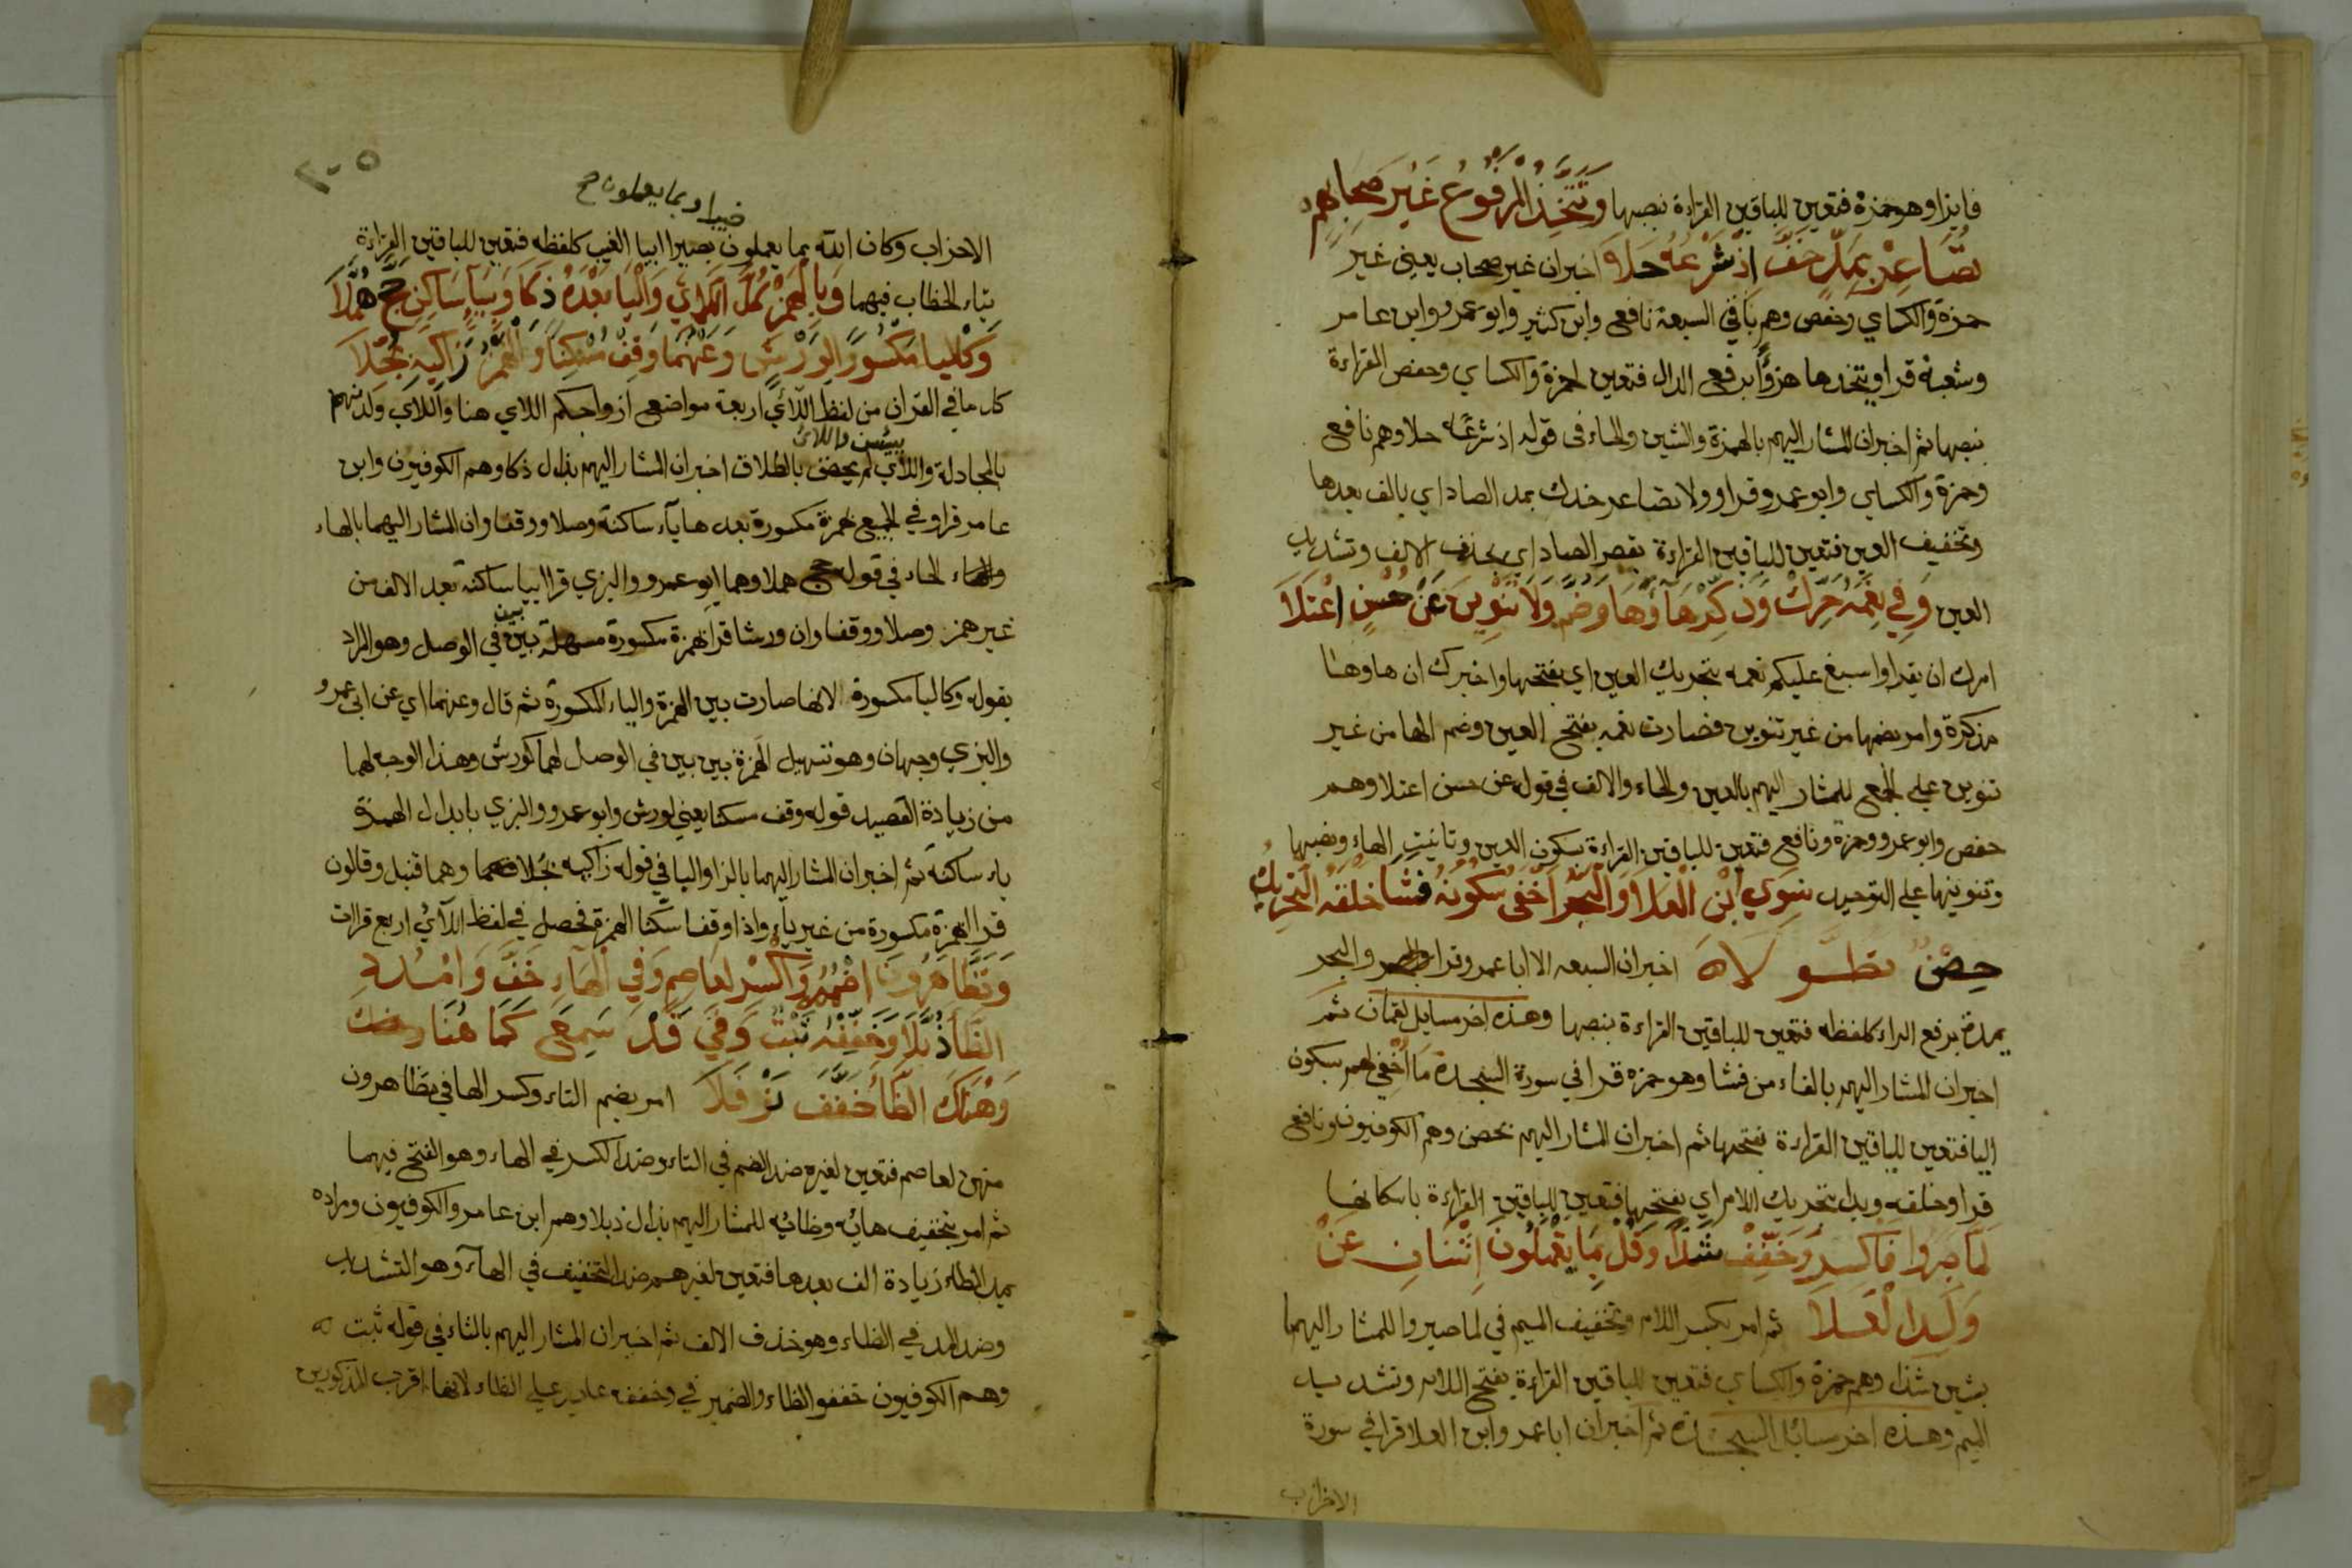 فايزا وهو حمزة فتعين للباقين القراءة بنصبها وَيَتَّخِذَ الْمَرْفُوعُ غَيْرُ صِحَابِهِمْ
تُصَاعِرْ بِمَدٍّ خَفَّ اِذْ شَرْعُهُ حَلَا اخبر ان غير صحاب يعني غير
حمزة والكساي وحفص وهم باقي السبعة نافع وابن كثير وابو عمرو وابن عامر
وشعبة قراو يتخذها هزؤا برفع الدال فتعين لحمزة والكساي وحفص القراءة
بنصبها ثم اخبر ان المشار اليهم بالهمزة والشين والحاء في قوله اذ شرعه حلا وهم نافع
وحمزة والكساي وابو عمرو قراو ولا تصاعر خدك بمد الصاد اي بالف بعدها
وتخفيف العين فتعين للباقين القراءة بقصر الصاد اي بحذف الالف وتشديد
العين وَفِي نِعْمَةً حَرِّكْ وَذُكِّرَ هَاؤُهَا وَضُمَّ وَلَا تَنْوِينَ عَنْ حُسْنٍ اعْتَلَا
امرك ان يقراوا سبغ عليكم نعمه بتحريك العين اي بفتحها واخبرك ان هاوها
مذكرة وامر بضمها من غير تنوين فصارت نعمه بفتح العين وضم الها من غير
تنوين على الجمع للمشار اليهم بالعين والحاء والالف في قوله عن حسن اعتلا وهم
حفص وابو عمرو وحمزة ونافع فتعين للباقين القراءة بسكون العين وتانيث الهاء ونصبها
وتنوينها على التوحيد سِوَي ابْنِ الْعَلَا وَالْبَحْرُ اُخْفِي سُكُونُهُ فَشَا خَلْقَهُ التَّحْرِيكُ
حِصْنٌ تطَوَّلَا اخبر ان السبعه الا ابا عمرو قرا والبحر
يمده برفع الراء كلفظه فتعين للباقين القراءة بنصبها وهذه اخر مسايل لقمان ثم
اخبر ان المشار اليهم بالفاء من فشا وهو حمزه قرا في سورة السجدة ما اخفي لهم بسكون
اليا فتعين للباقين القراءة بفتحها ثم اخبر ان المشار اليهم بحصن وهم الكوفيون ونافع
قراو خلقه وبدا بتحريك اللام اي بفتحها فتعين للباقين القراءة باسكانها
لِمَا صَبَرُوا فَاكْسِرْ وَخَفِّفْ شَذًا وَقُلْ بِمَا يَعْمَلُونَ اثْنَانِ عَنْ
وَلَدِ الْعَلَا ثم امر بكسر اللام وتخفيف الميم في لما صبروا للمشار اليهما
بشين شذا وهم حمزة والكساي فتعين للباقين القراءة بفتح اللام وتشديد
الميم وهذه اخر مسائل السجدة ثم اخبر ان ابا عمرو ابن العلا قرا في سورة
الاحزاب
٢٠٥
خبيرا وبما يعملون صح
الاحزاب وكان الله بما يعملون بصيرا بيا الغيب كلفظه فتعين للباقين القراءة
بتاء الخطاب فيهما وَبِالْهَمْزِ كُلُّ اللَّائِي وَالْيَاءُ بَعْدَهُ ذَكَا وَبِيَاءٍ سَاكِنٍ حَجَّ هُمَّلَا
وَكَالْيَا مَكْسُورًا لِوَرْشٍ وَعَنْهُمَا وَقِفْ مُسْكِنًا وَالْهَمْزُ زَاكِيهِ بُجِّلَا
كل ما في القران من لفظ اللآئي اربعة مواضع ازواجكم اللاي هنا واللاي ولدنهم
بالمجادلة واللآي يئسن واللائ لم يحضن بالطلاق اخبر ان المشار اليهم بذال ذكا وهم الكوفيون وابن
عامر قراو في الجميع بهمزة مكسورة بعدها يآء ساكنة وصلا ووقفا وان المشار اليهما بالهاء
والحاء في قوله حج هملا وهما ابو عمرو والبزي قرا بيا ساكنة بعد الالف من
غير همز وصلا ووقفا وان ورشا قرا بهمزة مكسورة مسهلة بين بين في الوصل وهو المراد
بقوله وكاليا مكسورة لانها صارت بين الهمزة والياء المكسورة ثم قال وعنهما اي عن ابي عمرو
والبزي وجهان وهو تسهيل الهمزة بين بين في الوصل لهما كورش وهذا الوجه لهما
من زيادة القصيد قوله وقف مسكنا يعني لورش وابو عمرو والبزي بابدال الهمزة
ياء ساكنة ثم اخبر ان المشار اليهما بالزا والبا في قوله زاكيه بجلا وهما قنبل وقالون
قرا الهمزة مكسورة من غير ياء واذا وقفا سكنا الهمزة فحصل في لفظ اللآئي اربع قراات
وَتَظَّاهَرُونَ اضْمُمْهُ وَاكْسِرْ لِعَاصِمٍ وَفِي الْهَاءِ خَفِّفْ وَامْدُدِ
الظَّاءَ ذُبَّلَا وَخَفَّفَهُ ثَبْتٌ وَفِي قَدْ سَمِعْ كَمَا هُنَا
وَهُنَاكَ الظَّاءُ خُفِّفَ نَوْفَلَا امر بضم التاء وكسر الها في تظاهرون
منهن لعاصم فتعين لغيره ضد الضم في التاء وضد الكسر في الهاء وهو الفتح فيهما
ثم امر بتخفيف هائه وظائه للمشار اليهم بذال ذبلا وهم ابن عامر والكوفيون ومراده
بمد الظاء زيادة الف بعدها فتعين لغيرهم ضد التخفيف في الهآء وهو التشديد
وضد المد في الظاء وهو حذف الالف ثم اخبر ان المشار اليهم بالثاء في قوله ثبت
وهم الكوفيون خففوا الظاء والضمير في وخففه عايد على الظاء لانها اقرب المذكورين